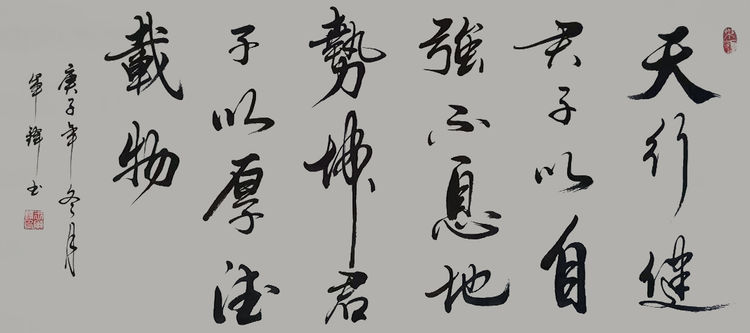 天行健
君子以自
強不息地
勢坤君
子以厚德
載物
庚子年冬月
书